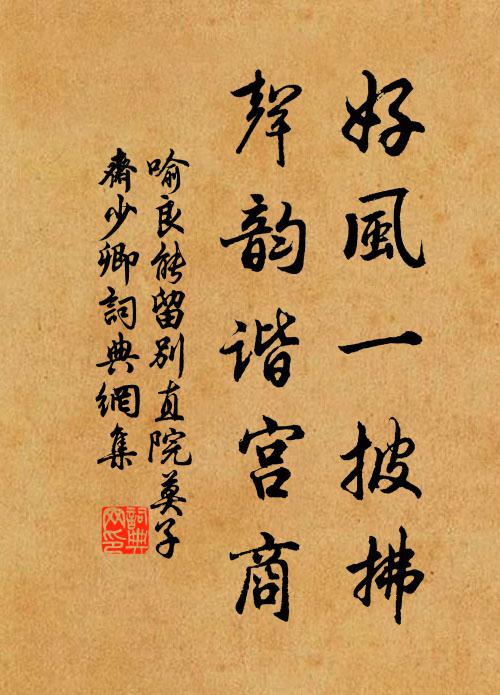 好風一披拂
聲韵谐宫商
喻良能留别直院莫子
齋少卿詞典網集
詞典網印